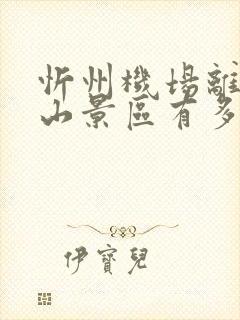 忻州機場離
山景區有多
伊寶兒